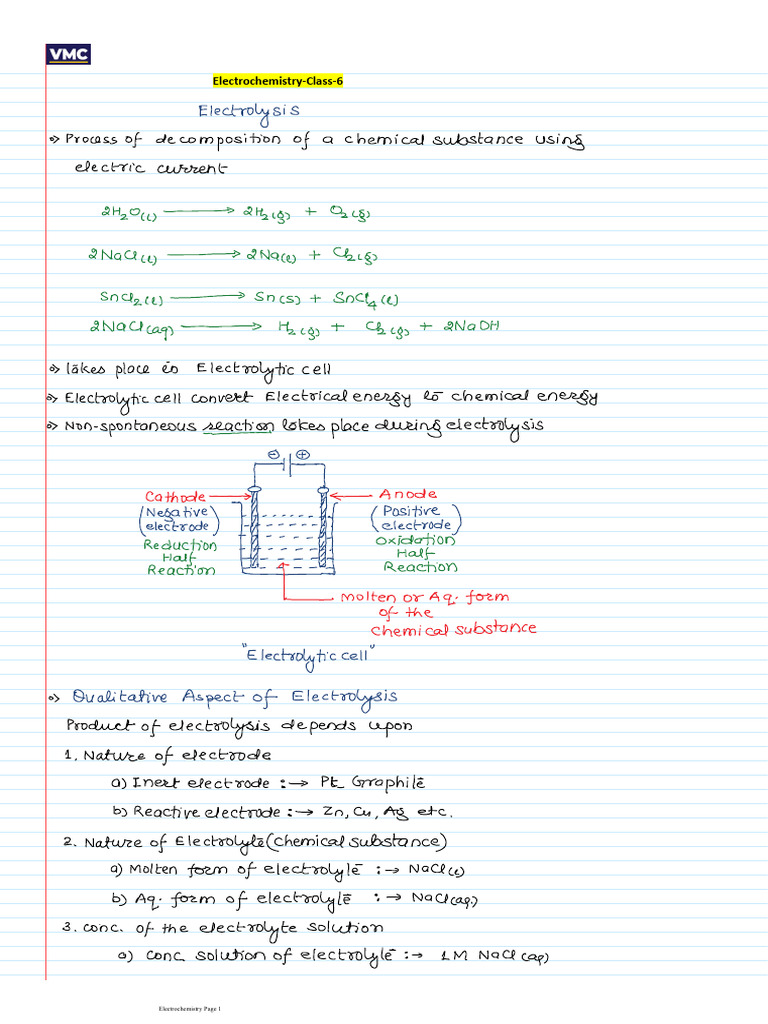 VMC
Electrochemistry-Class-6
Electrolysis
Process of decomposition of a chemical substance using
electric current
2H₂O(l) ⟶ 2H₂(g) + O₂(g)
2NaCl(l) ⟶ 2Na(l) + Cl₂(g)
SnCl₂(l) ⟶ Sn(s) + SnCl₄(l)
2NaCl(aq) ⟶ H₂(g) + Cl₂(g) + 2NaOH
takes place in Electrolytic cell
Electrolytic cell convert Electrical energy to chemical energy
Non-spontaneous reaction takes place during electrolysis
⊖ ⊕
Cathode
(Negative
electrode)
Reduction
Half
Reaction
Anode
(Positive
electrode)
Oxidation
Half
Reaction
Molten or Aq. form
of the
chemical substance
"Electrolytic cell"
Qualitative Aspect of Electrolysis
Product of electrolysis depends upon
1. Nature of electrode
a) Inert electrode :→ Pt, Graphite
b) Reactive electrode :→ Zn, Cu, Ag etc.
2. Nature of Electrolyte (chemical substance)
a) Molten form of electrolyte :→ NaCl(l)
b) Aq. form of electrolyte :→ NaCl(aq)
3. conc. of the electrolyte solution
a) conc. solution of electrolyte :→ 1M NaCl(aq)
Electrochemistry Page 1